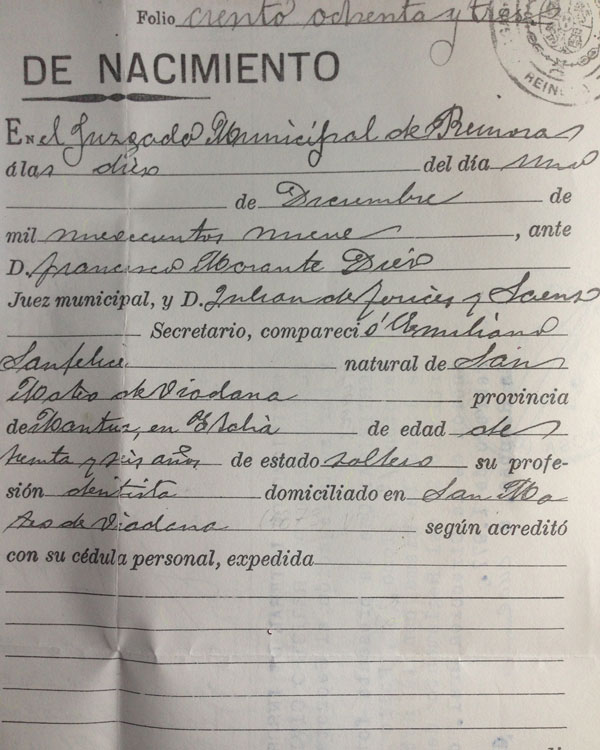 Folio ciento ochenta y tres
REIN
DE NACIMIENTO
En el Juzgado Municipal de Reinosa
á las diez del día uno
de Diciembre de
mil novecientos nueve, ante
D. Francisco Morante Diez
Juez municipal, y D. Julian de y Saenz
Secretario, compareció Emiliano
Sanfelice natural de San
Mateo de Viadana provincia
de Mantua, en Italia de edad de
treinta y seis años de estado soltero su profe-
sión dentista domiciliado en San Ma
teo de Viadana según acreditó
con su cédula personal, expedida